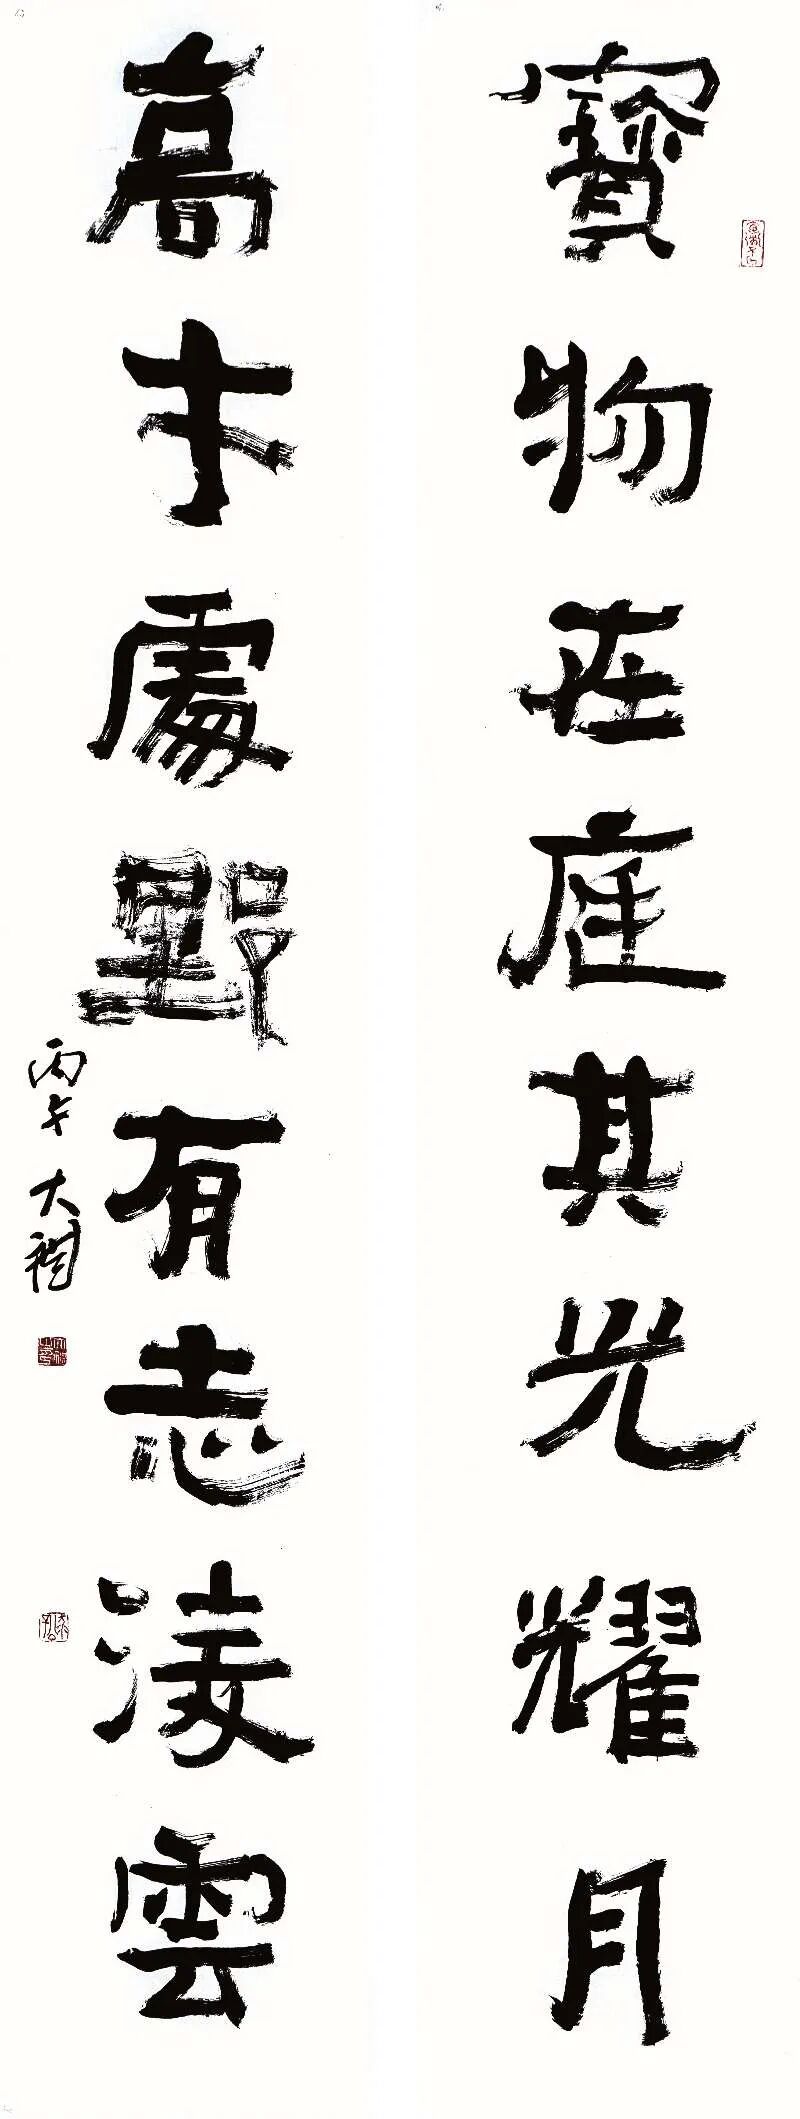 寶物在庭其光耀月
高才處野有志淩雲
丙午 大禮